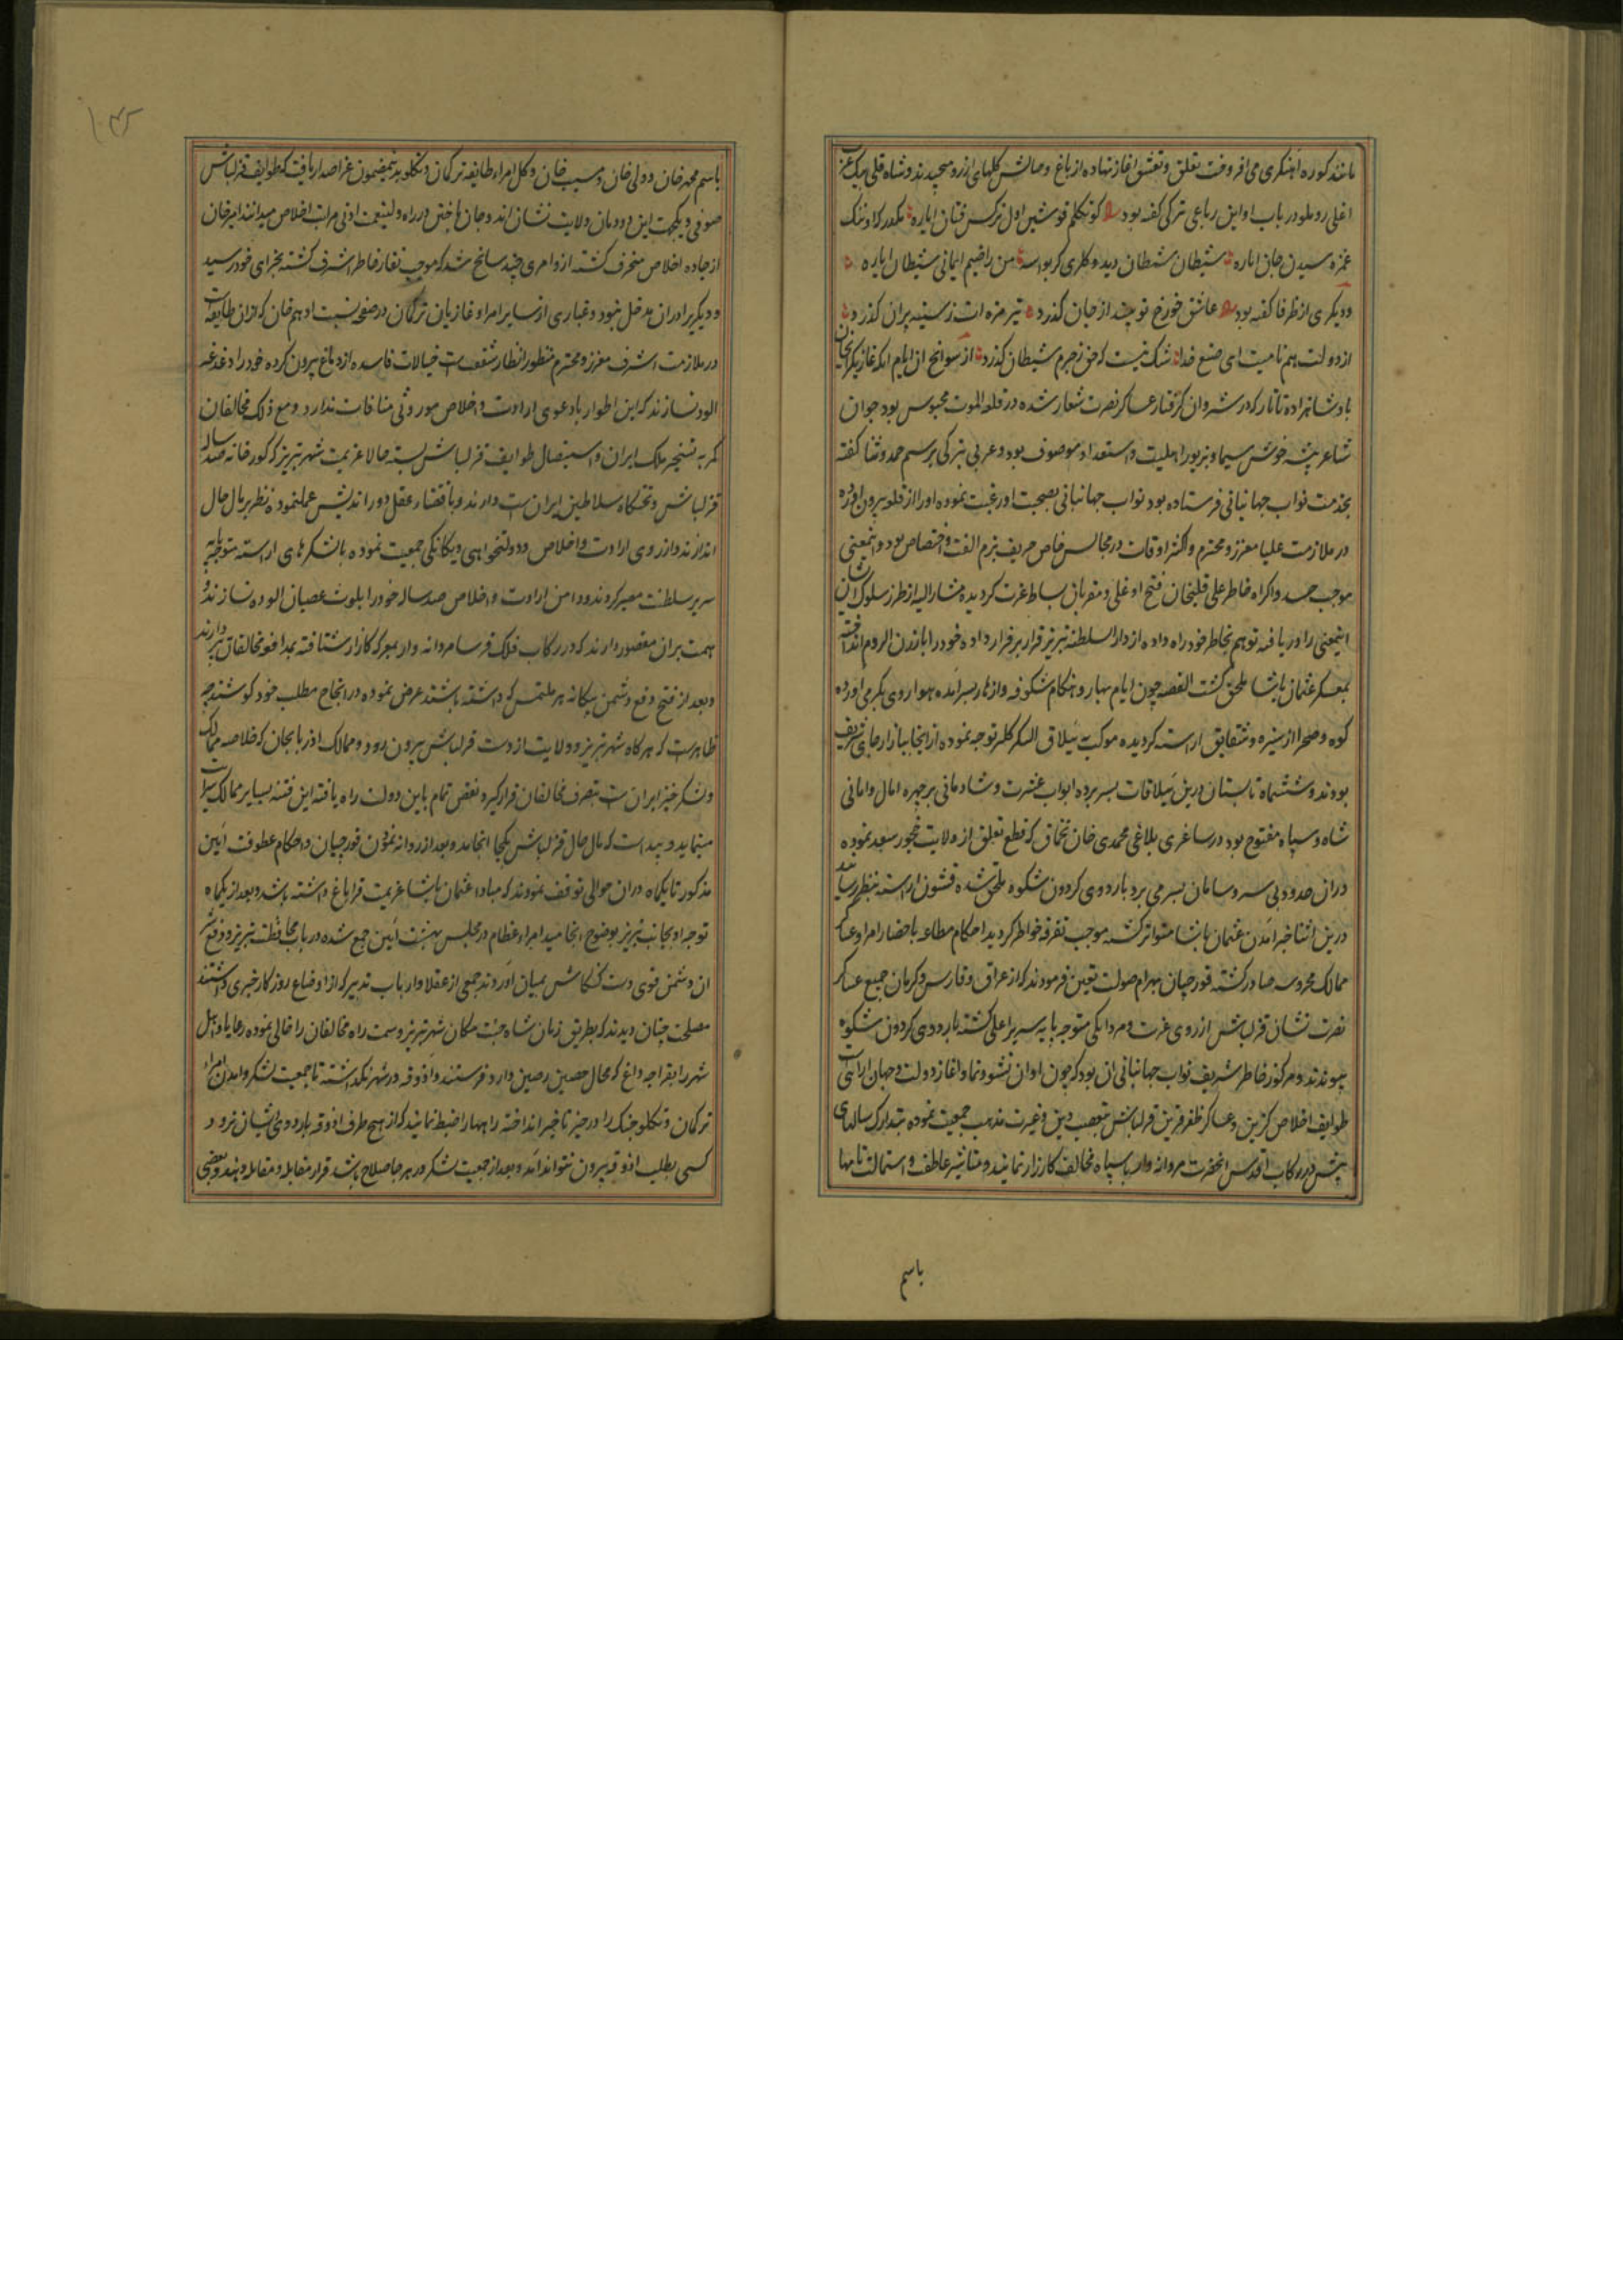 مانند کوره آهنکری می افروخت تعلق و تعشق اغاز نهاده از باغ وصالش کلهای آرزو میچیدند و شاه قلی بیک
اغلی روملو در باب او این رباعی ترکی کفته بود
غمزه سیدن جان اپاره شیطان شیطان دیدوکلری کر بو اسه من راضیم ایمانی شیطان اپاره
و دیکری از ظرفا کفته بود عاشق ز رخ تو چند از جان کذرد تیر مژه ات ز سینه پران کذرد
از دولت هم نامیت ای صنع خدا شک نیست که حق ز جرم شیطان کذرد از سوانح ان ایام انکه غازیکرایخان
پادشاهزاده تاتار که در شروان کرفتار عساکر نصرت شعار شده در قلعه الموت محبوس بود جوان
شاعر پیشه خوش سیما و بزیور اهلیت و استعداد موصوف بود و عربی ترکی برسم حمد و ثنا کفته
بخدمت نواب جهانبانی فرستاده بود نواب جهانبانی بصحبت او رغبت نموده او را از قلعه بیرون اورده
در ملازمت علیا معزز و محترم و اکثر اوقات در مجالس خاص حریف بزم الفت و اختصاص بود و اینمعنی
موجب حسد و اکراه خاطر علی قلیخان فتح اوغلی و مقربان بساط عزت کردیده مشار الیه از طرز سلوک ایشان
اینمعنی را دریافته توهم بخاطر خود راه داده از دارالسلطنه تبریز فرار بر قرار داده خود را بارزن الروم انداخته
بمعسکر عثمان پاشا ملحق کشت القصه چون ایام بهار و هنکام شکوفه و ازهار بسر آمده هوا روی بکرمی اورده
کوه و صحرا از سبزه و شقایق اراسته کردیده موکب به ییلاق الشکر کلمر توجه نموده از انجا ببازارجای تشریف
بودند و ششماه تابستان درین ییلاقات بسر برده ابواب عشرت و شادمانی بر چهره امال و امانی
شاه و سپاه مفتوح بود در ساغری بلاغی محمدی خان تخماق که قطع تعلق از ولایت چخور سعد نموده
دران حدود بی سر و سامان بسر می برد باردوی کردون شکوه ملحق شده قشون اراسته بنظر رسانید
درین اثنا خبر آمدن عثمان پاشا متواتر کشته موجب تفرقه خواطر کردید احکام مطاعه باحضار امرا و عساکر
ممالک محروسه صادر کشته قورچیان بهرام صولت تعین فرمودند که از عراق و فارس و کرمان جمیع عساکر
نصرت نشان قزلباش از روی عزت و مردانکی متوجه پایه سریر اعلی کشته باردوی کردون شکوه
پیوندند و مرکوز خاطر شریف نواب جهانبانی ان بود که چون اوان نشو و نما و اغاز دولت و جهان ارائی است
طوایف اخلاص کزین و عساکر ظفر قرین قزلباش بتعصب دین و غیرت مذهب جمعیت نموده بتدارک سالهای
پیش در رکاب اقدس انحضرت مردانه وار با سپاه مخالف کارزار نمایند و مناشیر عاطفت و استمالت نامها
باسم
باسم محمد خان و ولی خان و مسیب خان و کل امراء طایفه ترکمان و تکلو بدینمضمون عز اصدار یافت که طوایف قزلباش
صوفی و یکجهت این دودمان ولایت نشان اند و جان باختن در راه ولینعمت ادنی مراتب اخلاص میدانند امیر خان
از جاده اخلاص منحرف کشته از و امری چند سانح شد که موجب نقار خاطر اشرف کشته بجزای خود رسید
و دیکر برادران مدخل نبود و غباری از سایر امرا و غازیان ترکمان در ضمیر نیست ادهم خان که از ان طایفه است
در ملازمت اشرف معزز و محترم منظور انظار شفقت است خیالات فاسده از دماغ بیرون کرده خود را دغدغه
الود نسازند که این اطوار با دعوی ارادت و اخلاص موروثی منافات ندارد و مع ذلک مخالفان
کمر به تسخیر ملک ایران و استیصال طوایف قزلباش بسته حالا عزیمت شهر تبریز که کورخانه صد ساله
قزلباش و تختکاه سلاطین ایران ست دارند و باقتضاء عقل دوراندیش عمل نموده نظر بر مال حال
اندازند و از روی ارادت و اخلاص و دولتخواهی و یکانکی جمعیت نموده با لشکرهای اراسته متوجه پایه
سریر سلطنت مصیر کردند و دامن ارادت و اخلاص صد ساله خود را بلوث عصیان الوده نسازند
همت بران مقصور دارند که در رکاب فلک فرسا مردانه وار بمعرکه کارزار شتافته بمدافعه مخالفان پردازند
و بعد از فتح و دفع دشمن بیکانه هر ملتمسی که داشته باشند عرض نموده در انجاح مطلب خود کوشند چه
ظاهرست که هرکاه شهر تبریز و ولایت از دست قزلباش بیرون رود و ممالک اذربایجان که خلاصه ممالک
و لشکر خیز ایران ست بتصرف مخالفان قرار کیرد نقص تمام باین دولت راه یافته این فتنه بسایر ممالک سرایت
مینماید و پیداست که مال حال قزلباش بکجا انجامد و بعد از روانه نمودن قورچیان و احکام عطوفت آیین
مذکور تا یکماه دران حوالی توقف نمودند که مبادا عثمان پاشا عزیمت قراباغ داشته باشد و بعد از یکماه
توجه او بجانب تبریز بوضوح انجامید امراء عظام در مجلس بهشت آیین جمع شده در باب محافظت تبریز و دفع
ان دشمن قوی دست کنکاش بمیان آوردند جمعی از عقلا و ارباب تدبیر که از اوضاع روزکار خبری داشتند
مصلحت چنان دیدند که بطریق زمان شاه جنت مکان شهر تبریز و سمت راه مخالفان را خالی نموده رعایا و اهل
شهر را بقراجه داغ که محال حصین رصین دارد فرستند و آذوقه در شهر نکذاشته تا جمعیت لشکر و آمدن امراء
ترکمان و تکلو جنک را در حیز تاخیر انداخته راهها را ضبط نمایند که از هیچ طرف آذوقه باردوی ایشان نرود و
کسی بطلب آذوقه بیرون نتواند آمد و بعد از جمعیت لشکر در هر جا صلاح باشد قرار مقابله و مقاتله دهند و بعضی